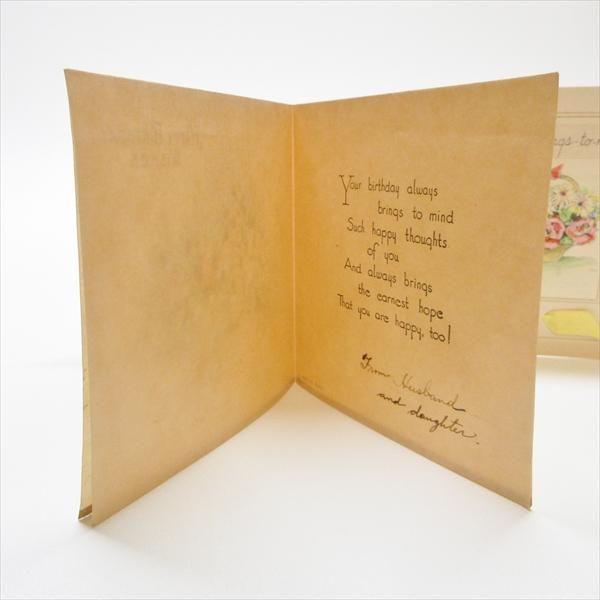 Your birthday always
brings to mind
Such happy thoughts
of you
And always brings
the earnest hope
That you are happy, too!
From Husband
and daughter.